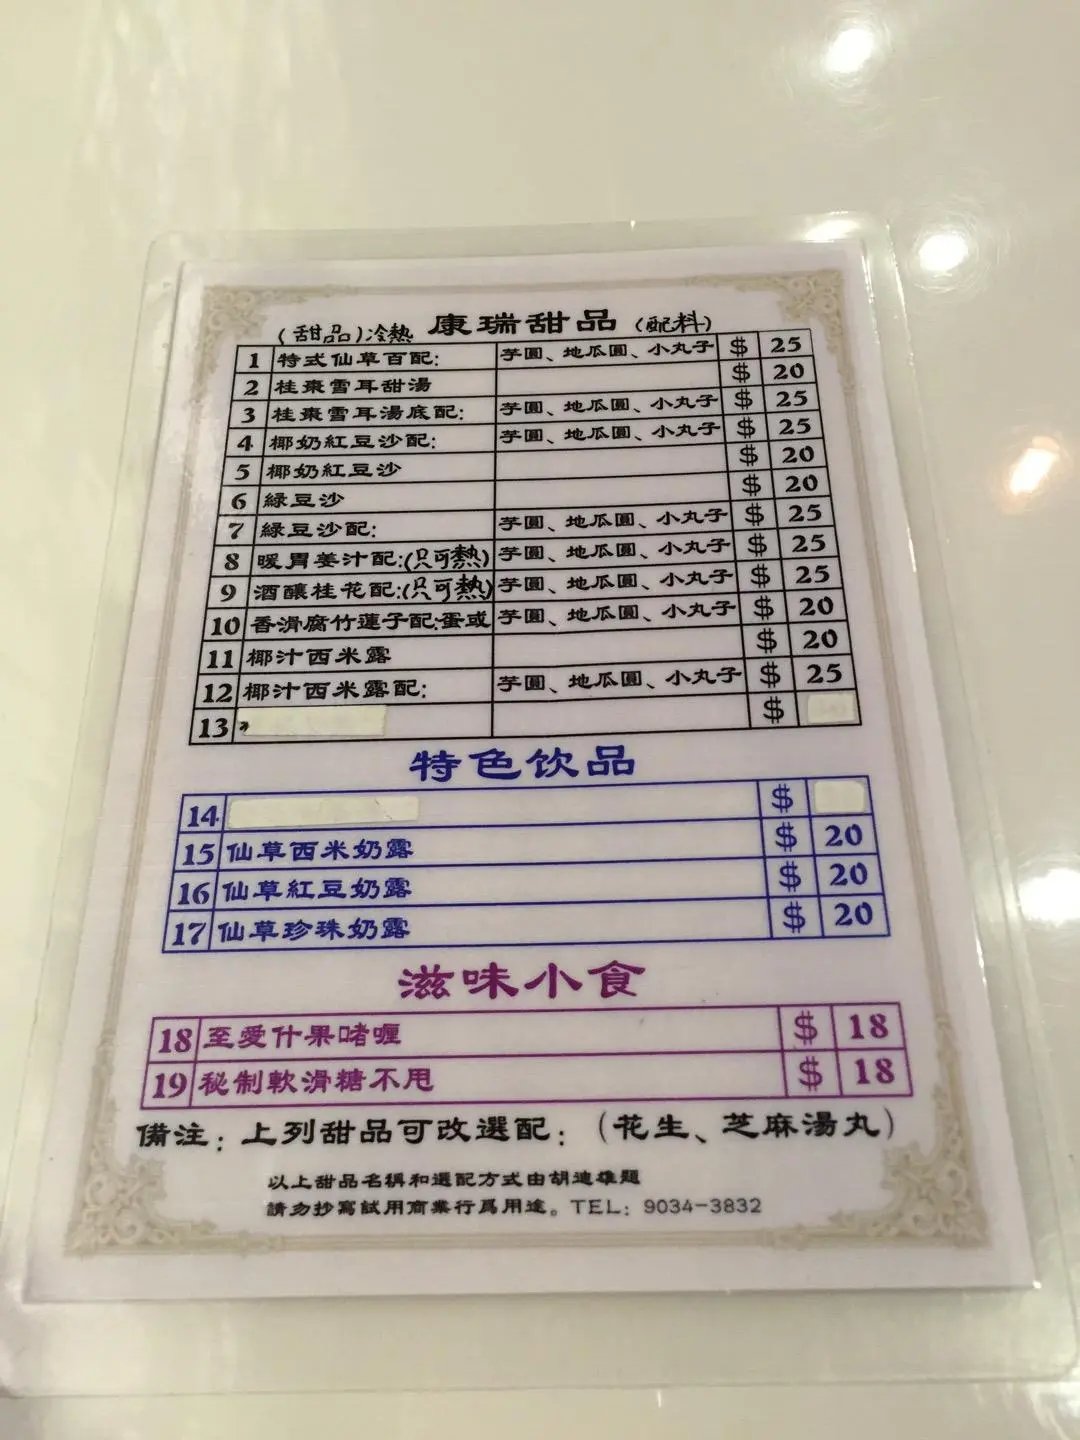 (甜品)冷熱 康瑞甜品 (配料)
1 特式仙草百配: 芋圓、地瓜圓、小丸子 $ 25
2 桂棗雪耳甜湯 $ 20
3 桂棗雪耳湯底配: 芋圓、地瓜圓、小丸子 $ 25
4 椰奶紅豆沙配: 芋圓、地瓜圓、小丸子 $ 25
5 椰奶紅豆沙 $ 20
6 綠豆沙 $ 20
7 綠豆沙配: 芋圓、地瓜圓、小丸子 $ 25
8 暖胃姜汁配:(只可熱) 芋圓、地瓜圓、小丸子 $ 25
9 酒釀桂花配:(只可熱) 芋圓、地瓜圓、小丸子 $ 25
10 香滑腐竹蓮子配:蛋或 芋圓、地瓜圓、小丸子 $ 20
11 椰汁西米露 $ 20
12 椰汁西米露配: 芋圓、地瓜圓、小丸子 $ 25
13 $
特色饮品
14 $
15 仙草西米奶露 $ 20
16 仙草紅豆奶露 $ 20
17 仙草珍珠奶露 $ 20
滋味小食
18 至愛什果啫喱 $ 18
19 秘制軟滑糖不甩 $ 18
備注: 上列甜品可改選配: (花生、芝麻湯丸)
以上甜品名稱和選配方式由胡迪雄題
請勿抄寫試用商業行爲用途。TEL: 9034-3832